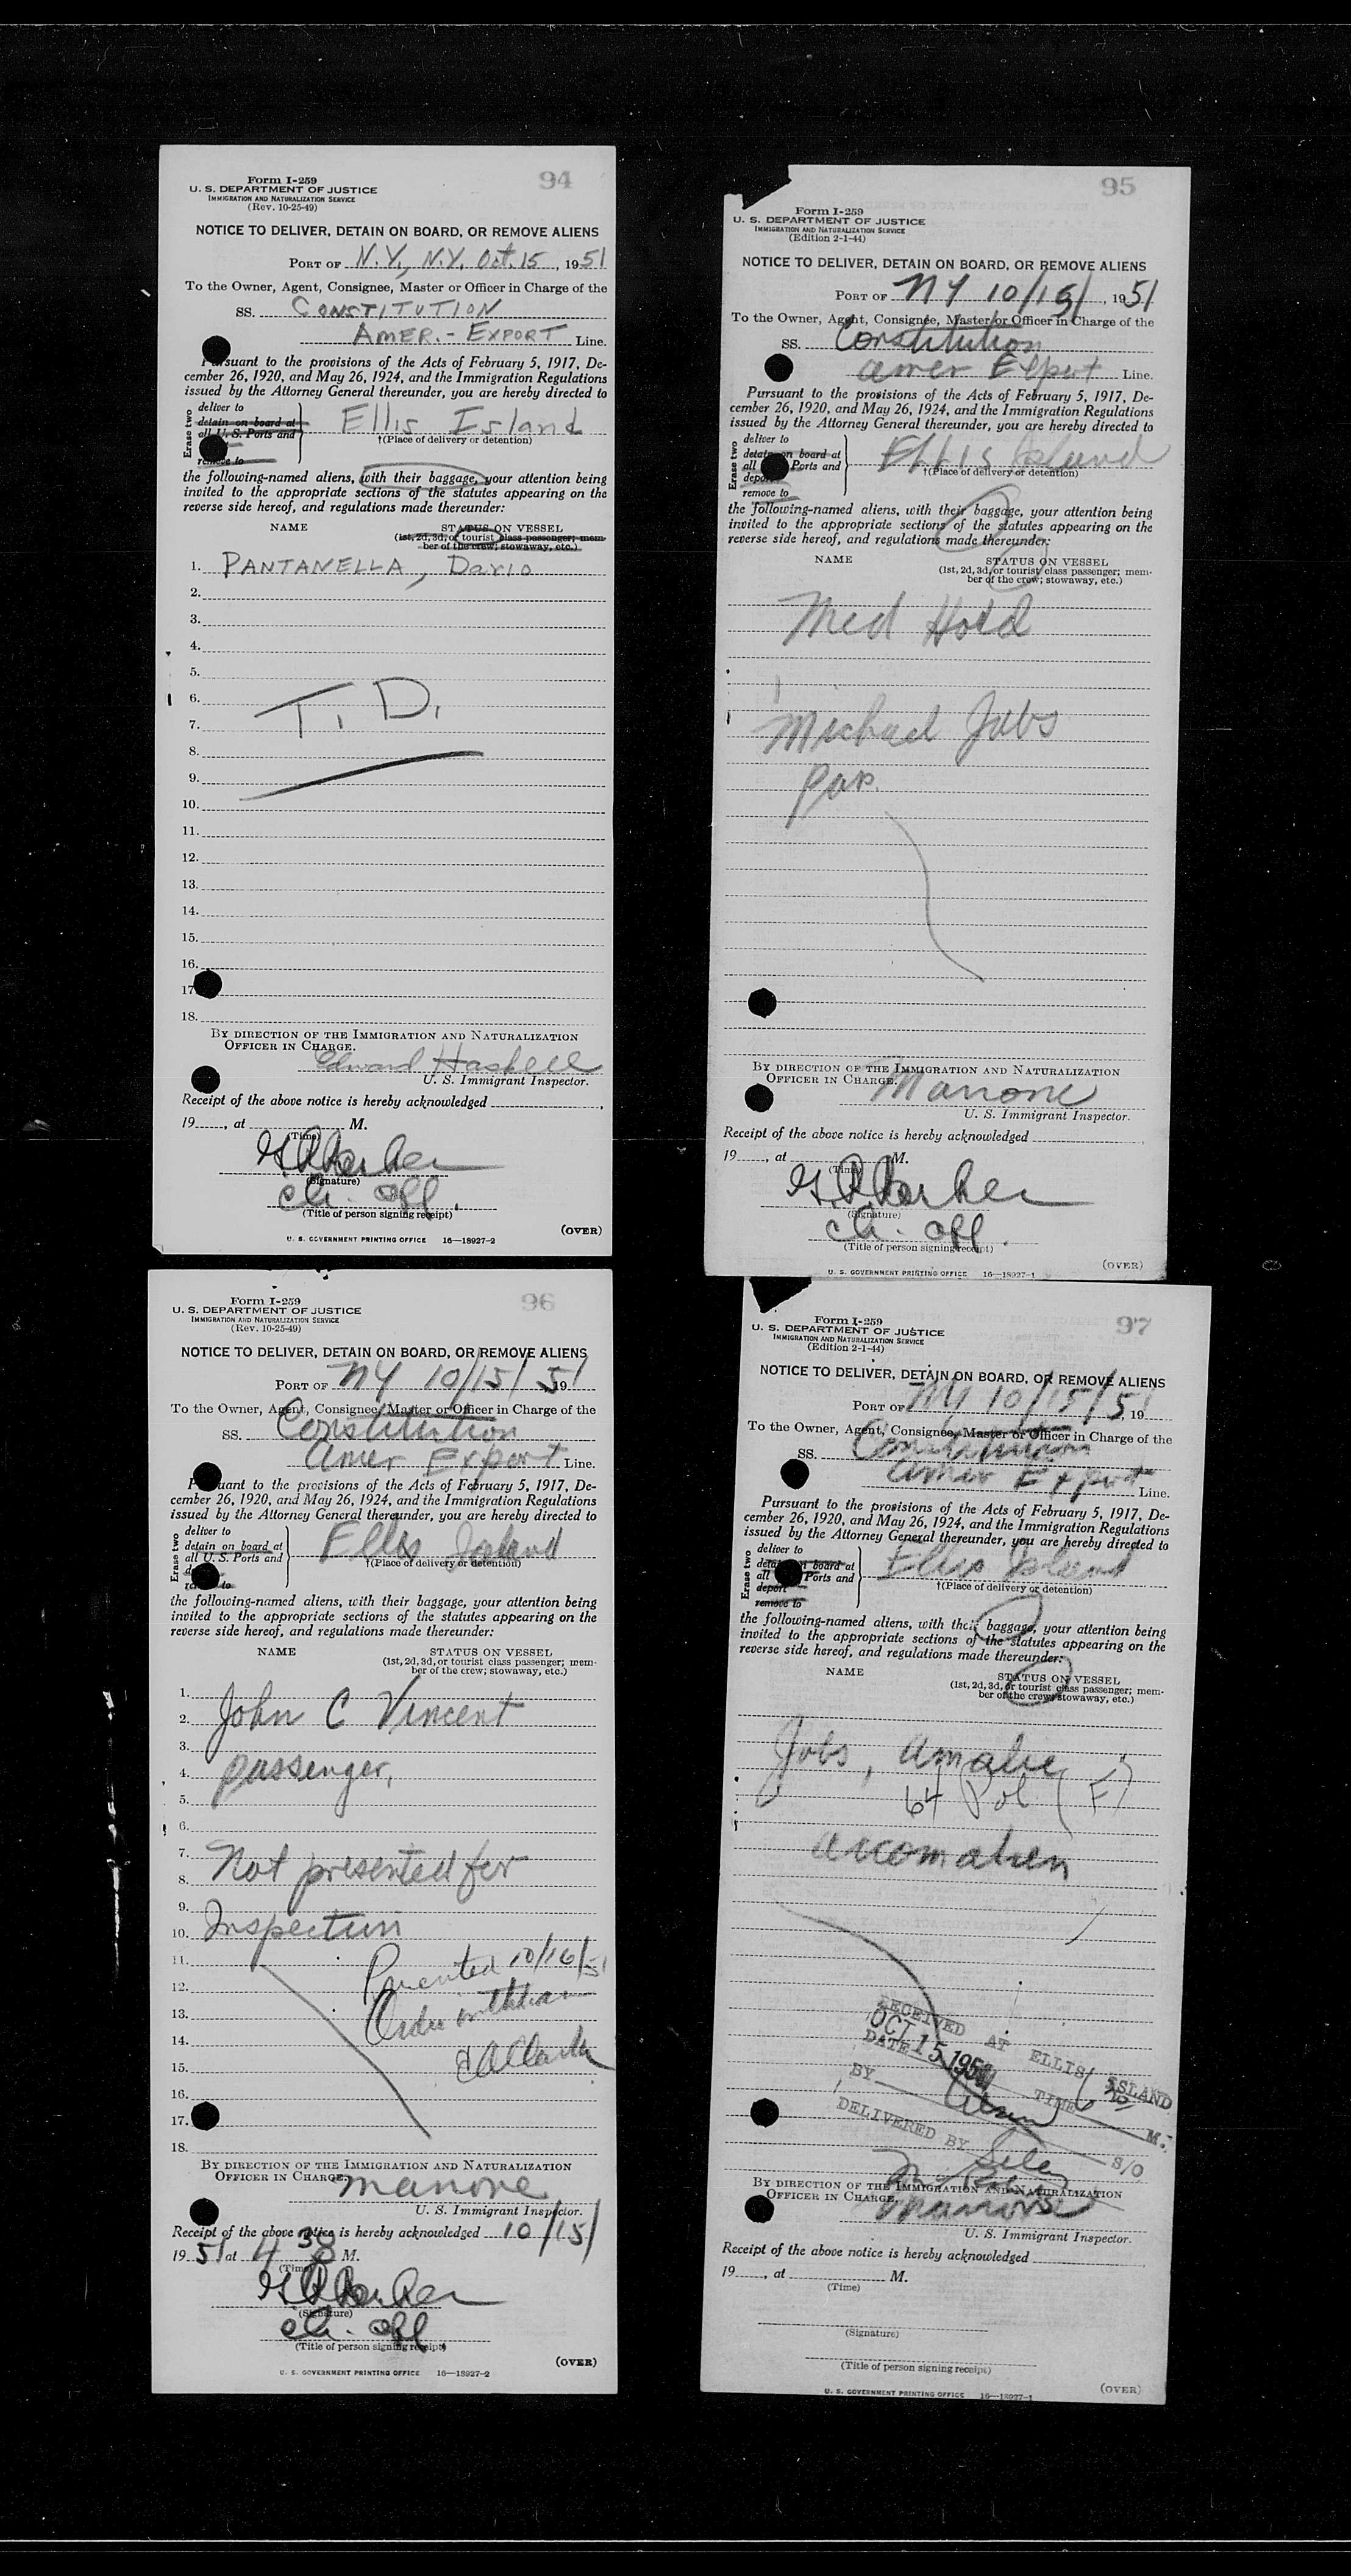 94
Form I-259
U. S. DEPARTMENT OF JUSTICE
IMMIGRATION AND NATURALIZATION SERVICE
(Rev. 10-25-49)
NOTICE TO DELIVER, DETAIN ON BOARD, OR REMOVE ALIENS
PORT OF N.Y., N.Y. Oct. 15, 1951
To the Owner, Agent, Consignee, Master or Officer in Charge of the
SS. CONSTITUTION
AMER. - EXPORT Line.
Pursuant to the provisions of the Acts of February 5, 1917, De-
cember 26, 1920, and May 26, 1924, and the Immigration Regulations
issued by the Attorney General thereunder, you are hereby directed to
Erase two
deliver to
detain on board at
all U. S. Ports and
remove to
Ellis Island
†(Place of delivery or detention)
the following-named aliens, with their baggage, your attention being
invited to the appropriate sections of the statutes appearing on the
reverse side hereof, and regulations made thereunder:
NAME STATUS ON VESSEL
(1st, 2d, 3d, or tourist class passenger; mem-
ber of the crew; stowaway, etc.)
1. PANTANELLA, Dario
2.
3.
4.
5.
6.
T. D.
7.
8.
9.
10.
11.
12.
13.
14.
15.
16.
17
18.
BY DIRECTION OF THE IMMIGRATION AND NATURALIZATION
OFFICER IN CHARGE.
Edward Haskell
U. S. Immigrant Inspector.
Receipt of the above notice is hereby acknowledged
19 , at M.
(Time)
(Signature)
ch. off.
(Title of person signing receipt)
(OVER)
U. S. GOVERNMENT PRINTING OFFICE 16—18927-2
95
Form I-259
U. S. DEPARTMENT OF JUSTICE
IMMIGRATION AND NATURALIZATION SERVICE
(Edition 2-1-44)
NOTICE TO DELIVER, DETAIN ON BOARD, OR REMOVE ALIENS
PORT OF NY 10/15/, 1951
To the Owner, Agent, Consignee, Master or Officer in Charge of the
SS. Constitution
Amer Export Line.
Pursuant to the provisions of the Acts of February 5, 1917, De-
cember 26, 1920, and May 26, 1924, and the Immigration Regulations
issued by the Attorney General thereunder, you are hereby directed to
Erase two
deliver to
detain on board at
all Ports and
deport
remove to
Ellis Island
†(Place of delivery or detention)
the following-named aliens, with their baggage, your attention being
invited to the appropriate sections of the statutes appearing on the
reverse side hereof, and regulations made thereunder:
NAME STATUS ON VESSEL
(1st, 2d, 3d, or tourist class passenger; mem-
ber of the crew; stowaway, etc.)
Med Hold
Michael Jobs
pas.
BY DIRECTION OF THE IMMIGRATION AND NATURALIZATION
OFFICER IN CHARGE.
Manone
U. S. Immigrant Inspector.
Receipt of the above notice is hereby acknowledged
19 , at M.
(Time)
(Signature)
ch. off.
(Title of person signing receipt)
(OVER)
U. S. GOVERNMENT PRINTING OFFICE 16—18927-1
96
Form I-259
U. S. DEPARTMENT OF JUSTICE
IMMIGRATION AND NATURALIZATION SERVICE
(Rev. 10-25-49)
NOTICE TO DELIVER, DETAIN ON BOARD, OR REMOVE ALIENS
PORT OF NY 10/15/ 51 19
To the Owner, Agent, Consignee, Master or Officer in Charge of the
SS. Constitution
Amer Export Line.
Pursuant to the provisions of the Acts of February 5, 1917, De-
cember 26, 1920, and May 26, 1924, and the Immigration Regulations
issued by the Attorney General thereunder, you are hereby directed to
Erase two
deliver to
detain on board at
all U. S. Ports and
remove to
Ellis Island
†(Place of delivery or detention)
the following-named aliens, with their baggage, your attention being
invited to the appropriate sections of the statutes appearing on the
reverse side hereof, and regulations made thereunder:
NAME STATUS ON VESSEL
(1st, 2d, 3d, or tourist class passenger; mem-
ber of the crew; stowaway, etc.)
1.
2. John C Vincent
3.
4. passenger,
5.
6.
7.
8. Not presented for
9.
10. Inspection
11. Presented 10/16/51
12.
13. Order withdrawn
14.
15.
16.
17.
18.
BY DIRECTION OF THE IMMIGRATION AND NATURALIZATION
OFFICER IN CHARGE.
Manone
U. S. Immigrant Inspector.
Receipt of the above notice is hereby acknowledged 10/15/
1951 at 4 30 M.
(Time)
(Signature)
ch. off.
(Title of person signing receipt)
(OVER)
U. S. GOVERNMENT PRINTING OFFICE 16—18927-2
97
Form I-259
U. S. DEPARTMENT OF JUSTICE
IMMIGRATION AND NATURALIZATION SERVICE
(Edition 2-1-44)
NOTICE TO DELIVER, DETAIN ON BOARD, OR REMOVE ALIENS
PORT OF NY 10/15/51, 19
To the Owner, Agent, Consignee, Master or Officer in Charge of the
SS. Constitution
Amer Export
Line.
Pursuant to the provisions of the Acts of February 5, 1917, De-
cember 26, 1920, and May 26, 1924, and the Immigration Regulations
issued by the Attorney General thereunder, you are hereby directed to
Erase two
deliver to
detain on board at
all Ports and
deport
remove to
Ellis Island
†(Place of delivery or detention)
the following-named aliens, with their baggage, your attention being
invited to the appropriate sections of the statutes appearing on the
reverse side hereof, and regulations made thereunder:
NAME STATUS ON VESSEL
(1st, 2d, 3d, or tourist class passenger; mem-
ber of the crew; stowaway, etc.)
Jobs, Amalie
64 Pol (F)
accom alien
RECEIVED AT ELLIS ISLAND
DATE OCT 15 1951 TIME M.
BY S/O
DELIVERED BY
BY DIRECTION OF THE IMMIGRATION AND NATURALIZATION
OFFICER IN CHARGE.
Manone
U. S. Immigrant Inspector.
Receipt of the above notice is hereby acknowledged
19 , at M.
(Time)
(Signature)
(Title of person signing receipt)
(OVER)
U. S. GOVERNMENT PRINTING OFFICE 16—18927-1